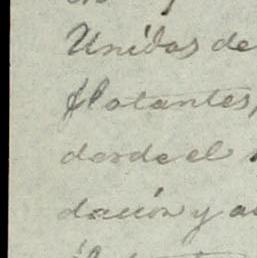 Unidos de
flotantes,
desde el
dación y